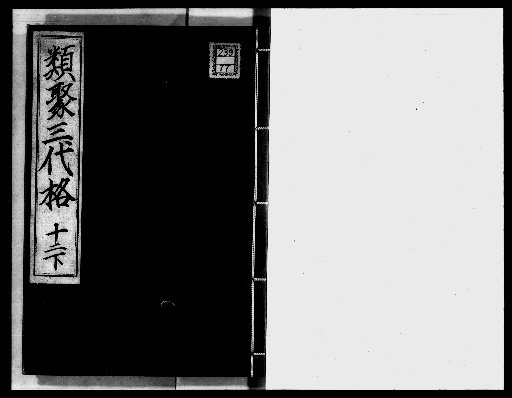 類聚三代格 十二下
239
17